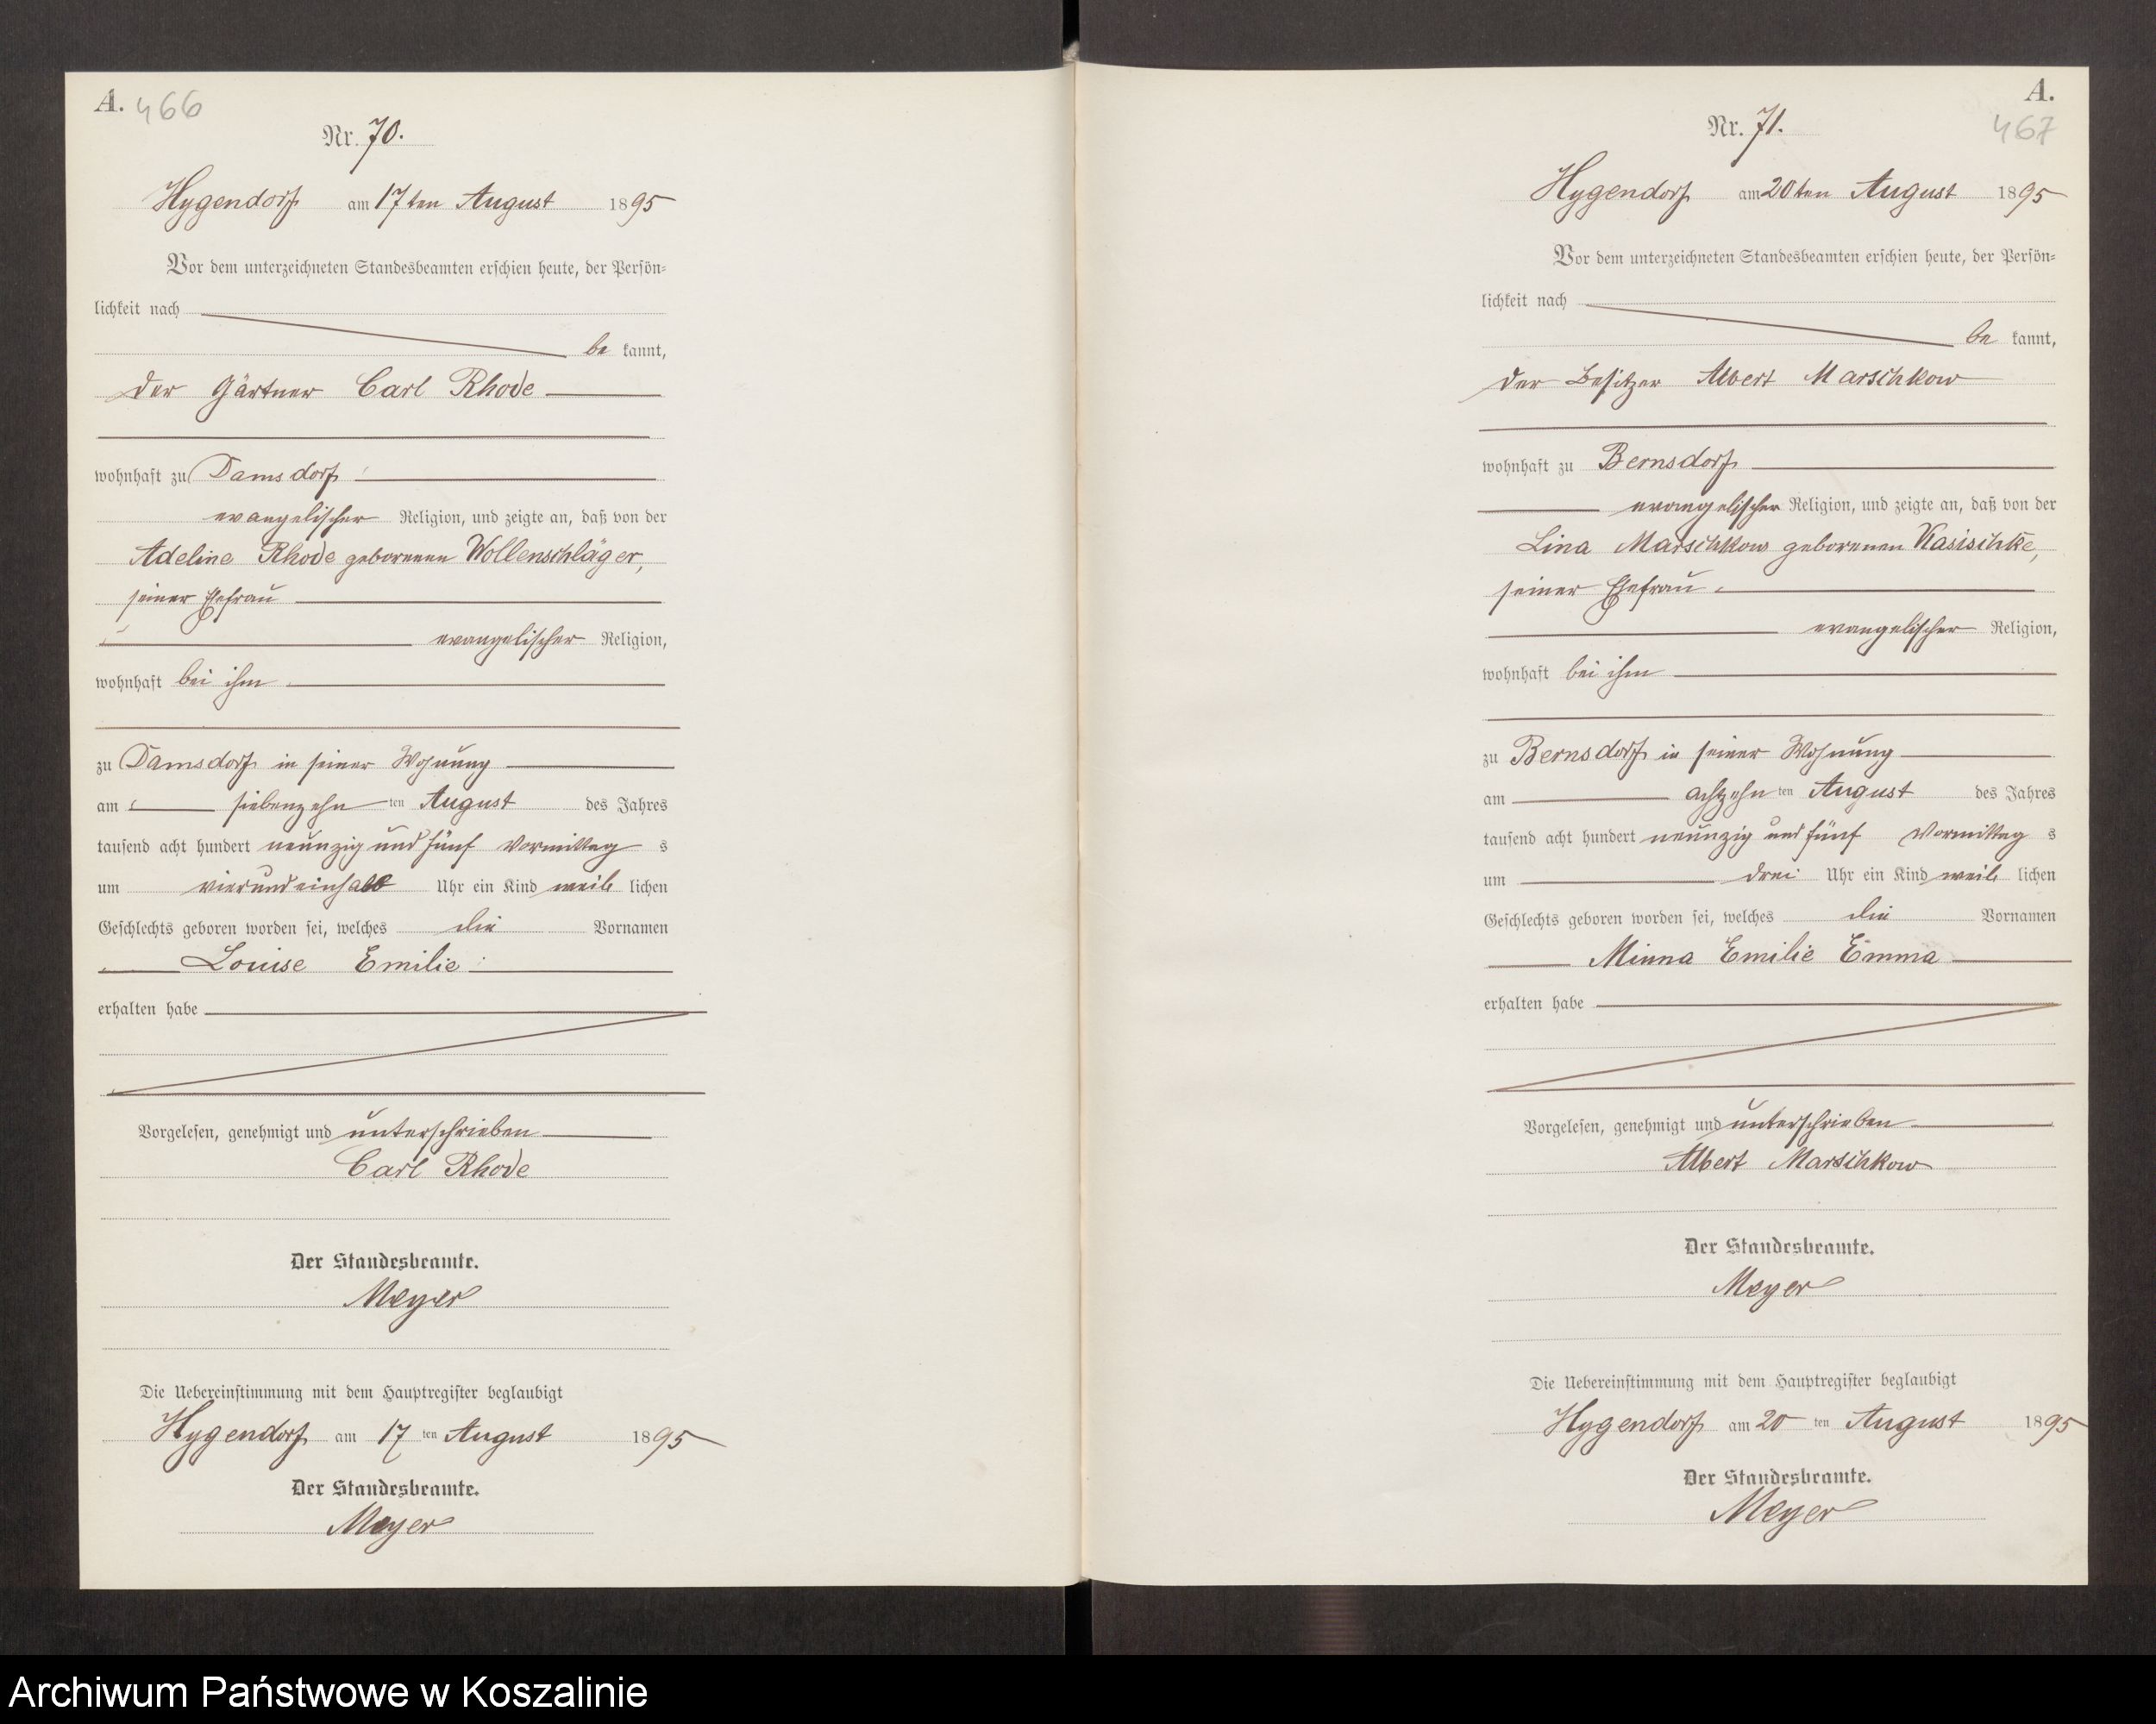 A. 466
Nr. 70.
Hygendorf am 17ten August 1895
Vor dem unterzeichneten Standesbeamten erschien heute, der Persön-
lichkeit nach
be kannt,
der Gärtner Carl Rhode
wohnhaft zu Damsdorf
evangelischer Religion, und zeigte an, daß von der
Adeline Rhode geborenen Wollenschläger,
seiner Ehefrau
evangelischer Religion,
wohnhaft bei ihm
zu Damsdorf in seiner Wohnung
am siebenzehn ten August des Jahres
tausend acht hundert neunzig und fünf Vormittag s
um vierundeinhalb Uhr ein Kind weib lichen
Geschlechts geboren worden sei, welches die Vornamen
Louise Emilie
erhalten habe
Vorgelesen, genehmigt und unterschrieben
Carl Rhode
Der Standesbeamte.
Meyer
Die Uebereinstimmung mit dem Hauptregister beglaubigt
Hygendorf am 17 ten August 1895
Der Standesbeamte.
Meyer
A.
467
Nr. 71.
Hygendorf am 20ten August 1895
Vor dem unterzeichneten Standesbeamten erschien heute, der Persön-
lichkeit nach
be kannt,
der Besitzer Albert Marschkow
wohnhaft zu Bernsdorf
evangelischer Religion, und zeigte an, daß von der
Lina Marschkow geborenen Kasischke,
seiner Ehefrau
evangelischer Religion,
wohnhaft bei ihm
zu Bernsdorf in seiner Wohnung
am achtzehn ten August des Jahres
tausend acht hundert neunzig und fünf Vormittag s
um drei Uhr ein Kind weib lichen
Geschlechts geboren worden sei, welches die Vornamen
Minna Emilie Emma
erhalten habe
Vorgelesen, genehmigt und unterschrieben
Albert Marschkow
Der Standesbeamte.
Meyer
Die Uebereinstimmung mit dem Hauptregister beglaubigt
Hygendorf am 20 ten August 1895
Der Standesbeamte.
Meyer
Archiwum Państwowe w Koszalinie